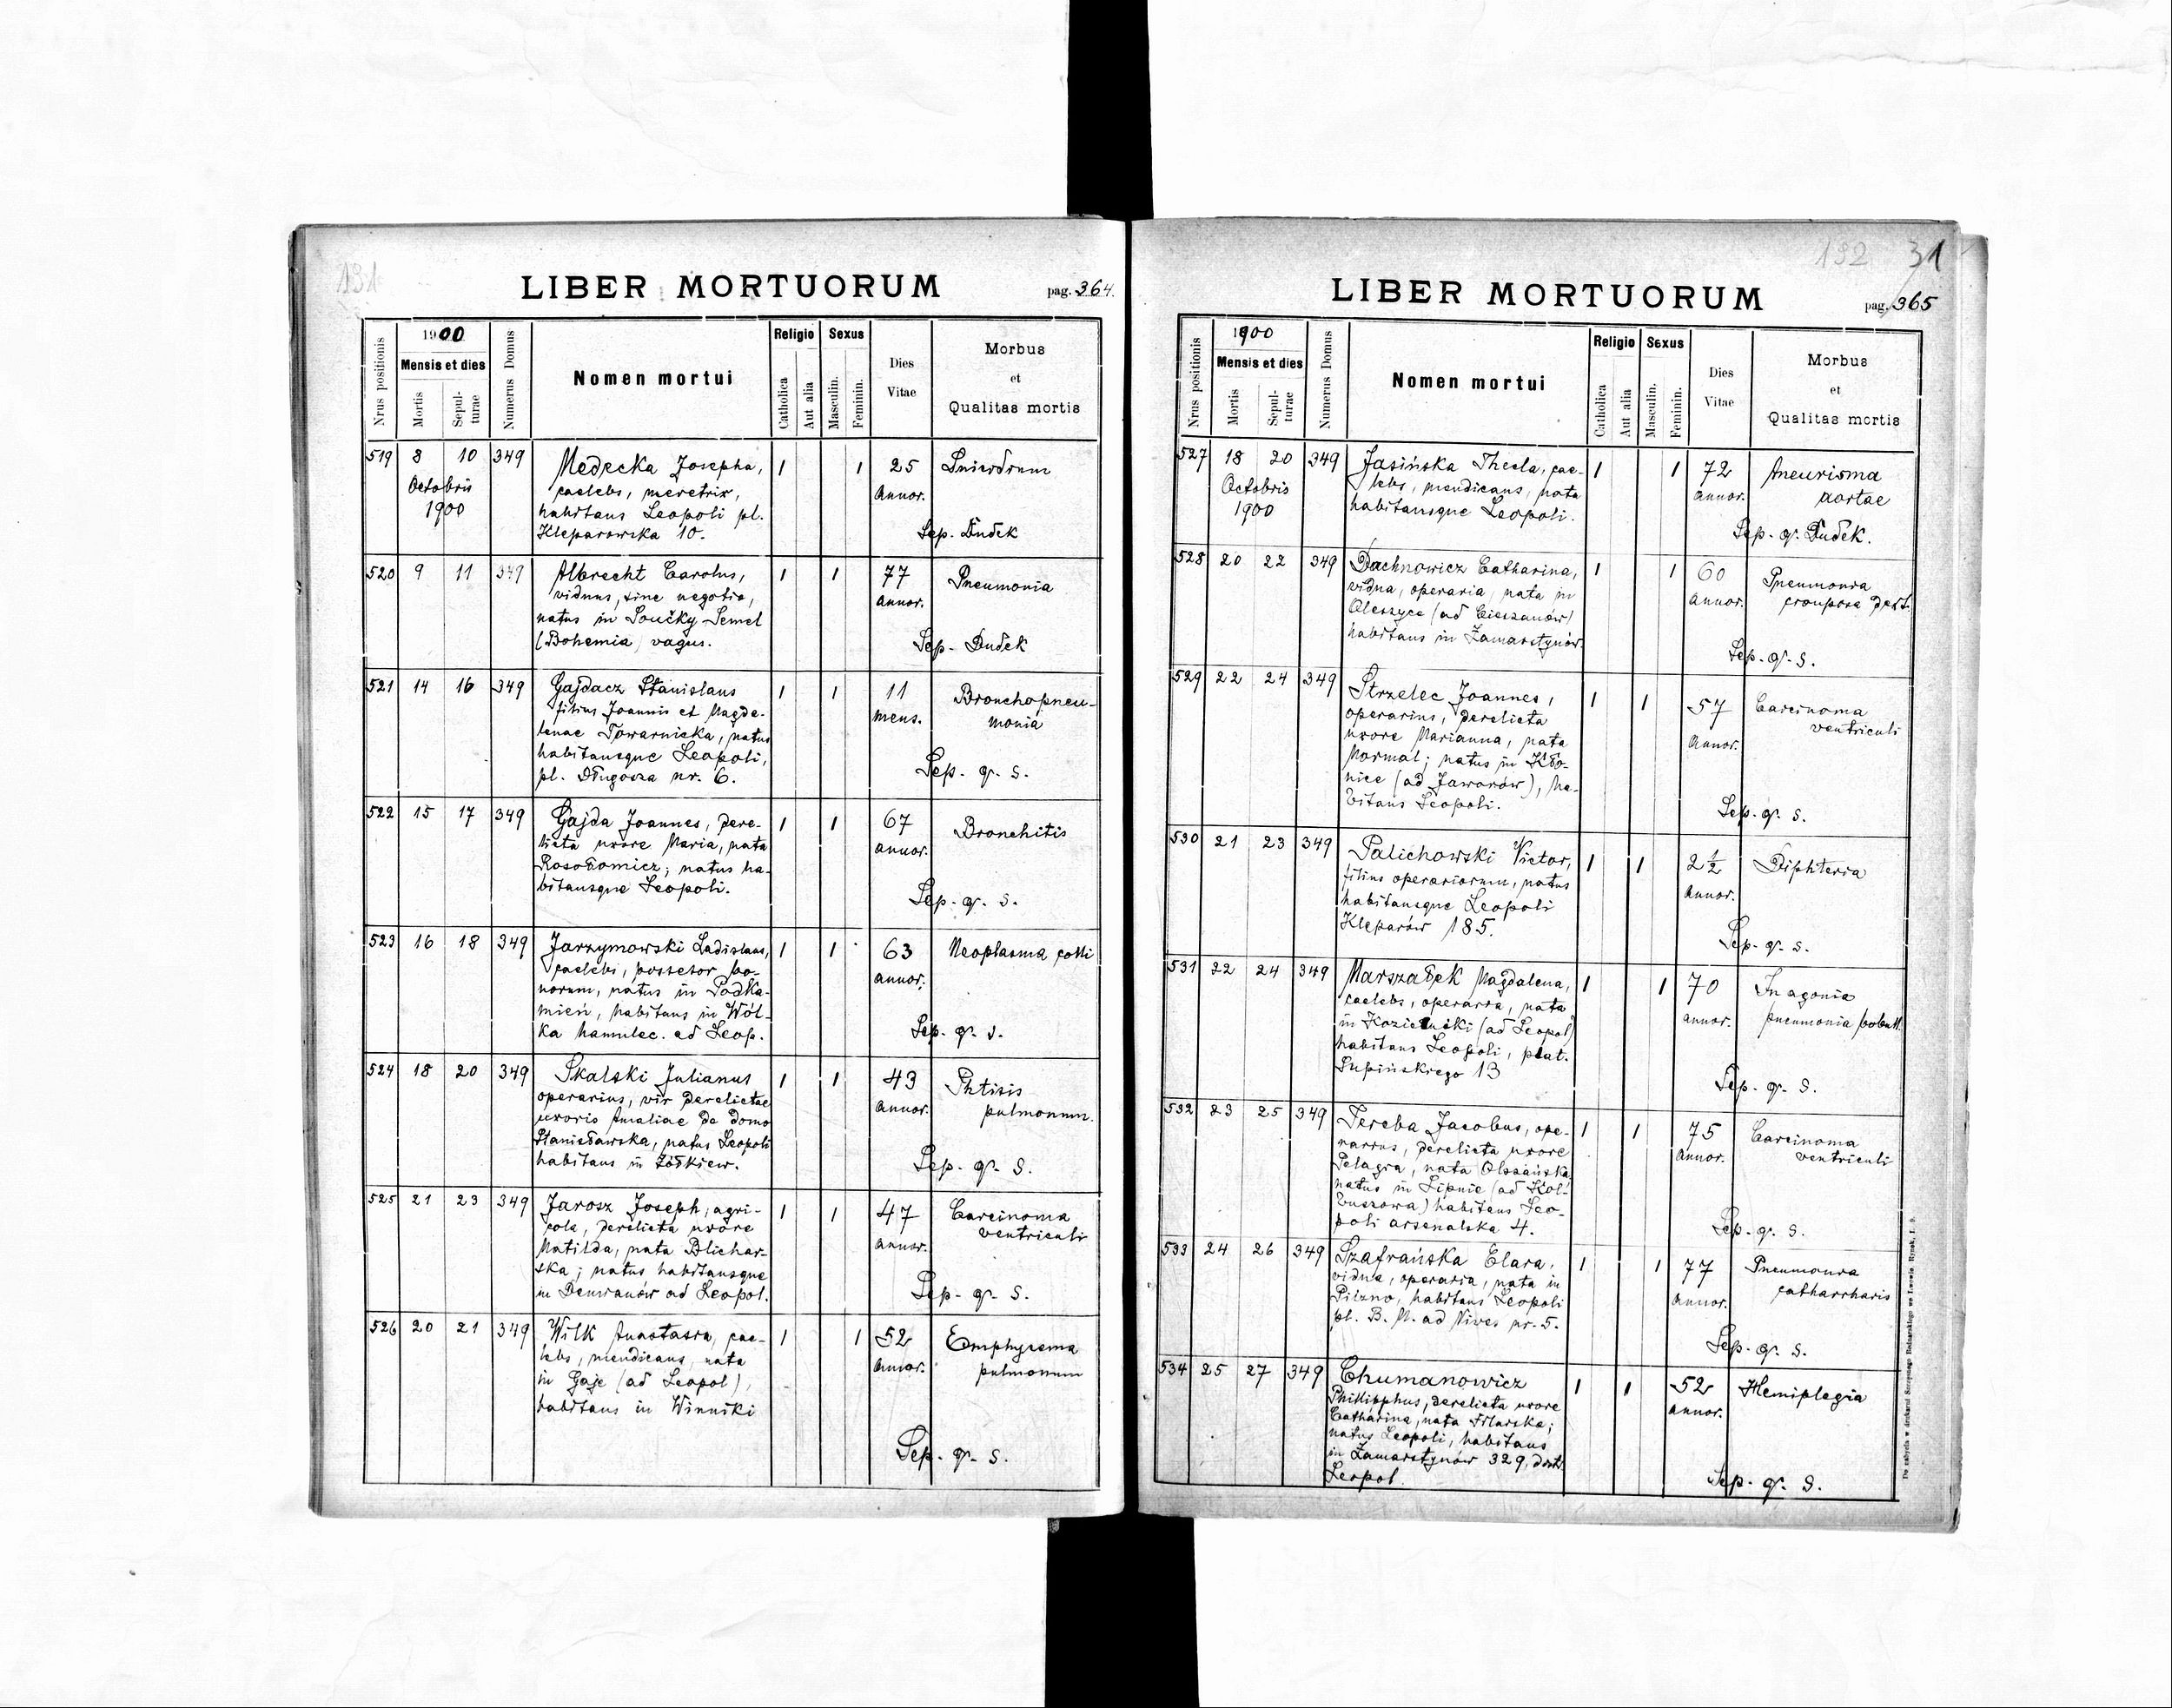 131
LIBER MORTUORUM
pag. 364.
Nrus positionis
1900
Mensis et dies
Mortis
Sepul-
turae
Numerus Domus
Nomen mortui
Religio
Catholica
Aut alia
Sexus
Masculin.
Feminin.
Dies
Vitae
Morbus
et
Qualitas mortis
519 8 10 349
Octobris
1900
Medecka Josepha,
caelebs, meretrix,
habitans Leopoli pl.
Kleparowska 10.
1 1 25
annor.
Sep. Dudek
520 9 11 349
Albrecht Carolus,
viduus, sine negotio,
natus in Loučky Semel
(Bohemia) vagus.
1 1 77
annor.
Pneumonia
Sep. Dudek
521 14 16 349
Gajdacz Stanislaus
filius Joannis et Magda-
lenae Towarnicka, natus
habitansque Leopoli,
pl. Długosza nr. 6.
1 1 11
mens.
Bronchopneu-
monia
Sep. q. s.
522 15 17 349
Gajda Joannes, dere-
licta uxore Maria, nata
Rosołowicz; natus ha-
bitansque Leopoli.
1 1 67
annor.
Bronchitis
Sep. q. s.
523 16 18 349
Jarzymowski Ladislaus,
caelebs, possesor bo-
norum, natus in Podka-
mień, habitans in Wól-
ka hamulec. ad Leop.
1 1 63
annor.
Neoplasma colli
Sep. q. s.
524 18 20 349
Skalski Julianus
operarius, vir derelictae
uxoris Amaliae de domo
Stanisławska, natus Leopoli
habitans in Żółkiew.
1 1 43
annor.
Phtisis
pulmonum.
Sep. q. s.
525 21 23 349
Jarosz Joseph, agri-
cola, derelicta uxore
Matilda, nata Blichar-
ska; natus habitansque
in ad Leopol.
1 1 47
annor.
Carcinoma
ventriculi
Sep. q. s.
526 20 21 349
Wilk Anastasia, cae-
lebs, mendicans, nata
in Gaje (ad Leopol),
habitans in Winniki
1 1 52
annor.
Emphysema
pulmonum
Sep. q. s.
132 31
LIBER MORTUORUM
pag. 365
Nrus positionis
1900
Mensis et dies
Mortis
Sepul-
turae
Numerus Domus
Nomen mortui
Religio
Catholica
Aut alia
Sexus
Masculin.
Feminin.
Dies
Vitae
Morbus
et
Qualitas mortis
527 18 20 349
Octobris
1900
Jasińska Thecla, cae-
lebs, mendicans, nata
habitansque Leopoli.
1 1 72
annor.
Aneurisma
aortae
Sep. q. Dudek.
528 20 22 349
Dachnowicz Catharina,
vidua, operaria, nata in
Oleszyce (ad Cieszanów)
habitans in Zamarstynów.
1 1 60
annor.
Pneumonia
crouposa dext.
Sep. q. s.
529 22 24 349
Strzelec Joannes,
operarius, derelicta
uxore Marianna, nata
Mormal; natus in Kło-
nice (ad Jaworów), ha-
bitans Leopoli.
1 1 57
annor.
Carcinoma
ventriculi
Sep. q. s.
530 21 23 349
Palichowski Victor,
filius operariorum, natus
habitansque Leopoli
Kleparów 185.
1 1 2 1/2
annor.
Diphteria
Sep. q. s.
531 22 24 349
Marszałek Magdalena,
caelebs, operaria, nata
in Kozielniki (ad Leopol)
habitans Leopoli, plat.
Supińskiego 13
1 1 70
annor.
In agonia
pneumonia
Sep. q. s.
532 23 25 349
Tereba Jacobus, ope-
rarius, derelicta uxore
Pelagia, nata Olszańska,
natus in Lipnie (ad Kol-
buszowa) habitans Leo-
poli arsenalska 4.
1 1 75
annor.
Carcinoma
ventriculi
Sep. q. s.
533 24 26 349
Szafrańska Clara,
vidua, operaria, nata in
Pilzno, habitans Leopoli
pl. B. M. ad Nives nr. 5.
1 1 77
annor.
Pneumonia
catharrhalis
Sep. q. s.
534 25 27 349
Chumanowicz
Phillipphus, derelicta uxore
Catharina, nata
natus Leopoli, habitans
in Zamarstynów 329, distr.
Leopol.
1 1 52
annor.
Hemiplegia
Sep. q. s.